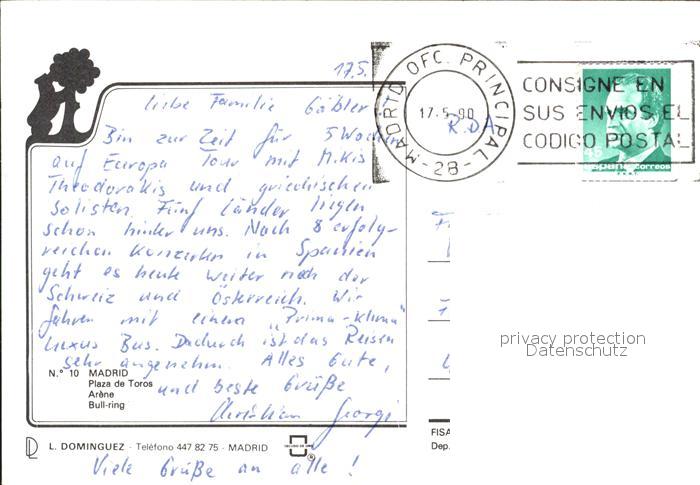 17.5.
Liebe Familie Gäbler
Bin zur Zeit für 5 Wochen
auf Europa Tour mit Mikis
Theodorakis und griechischen
Solisten. Fünf Länder liegen
schon hinter uns. Nach 8 erfolg-
reichen Konzerten in Spanien
geht es heute weiter nach der
Schweiz und Österreich. Wir
fahren mit einem "Prima-Klima"
Luxus Bus. Dadurch ist das Reisen
sehr angenehm. Alles Gute,
und beste Grüße
Christian Georgi
Viele Grüße an alle!
N.º 10 MADRID
Plaza de Toros
Arène
Bull-ring
L. DOMINGUEZ - Teléfono 447 82 75 - MADRID
MADRID OFC. PRINCIPAL
17-5-90
-28-
R.DA
CONSIGNE EN
SUS ENVIOS EL
CODIGO POSTAL
españa correos
FISA
Dep.
privacy protection
Datenschutz